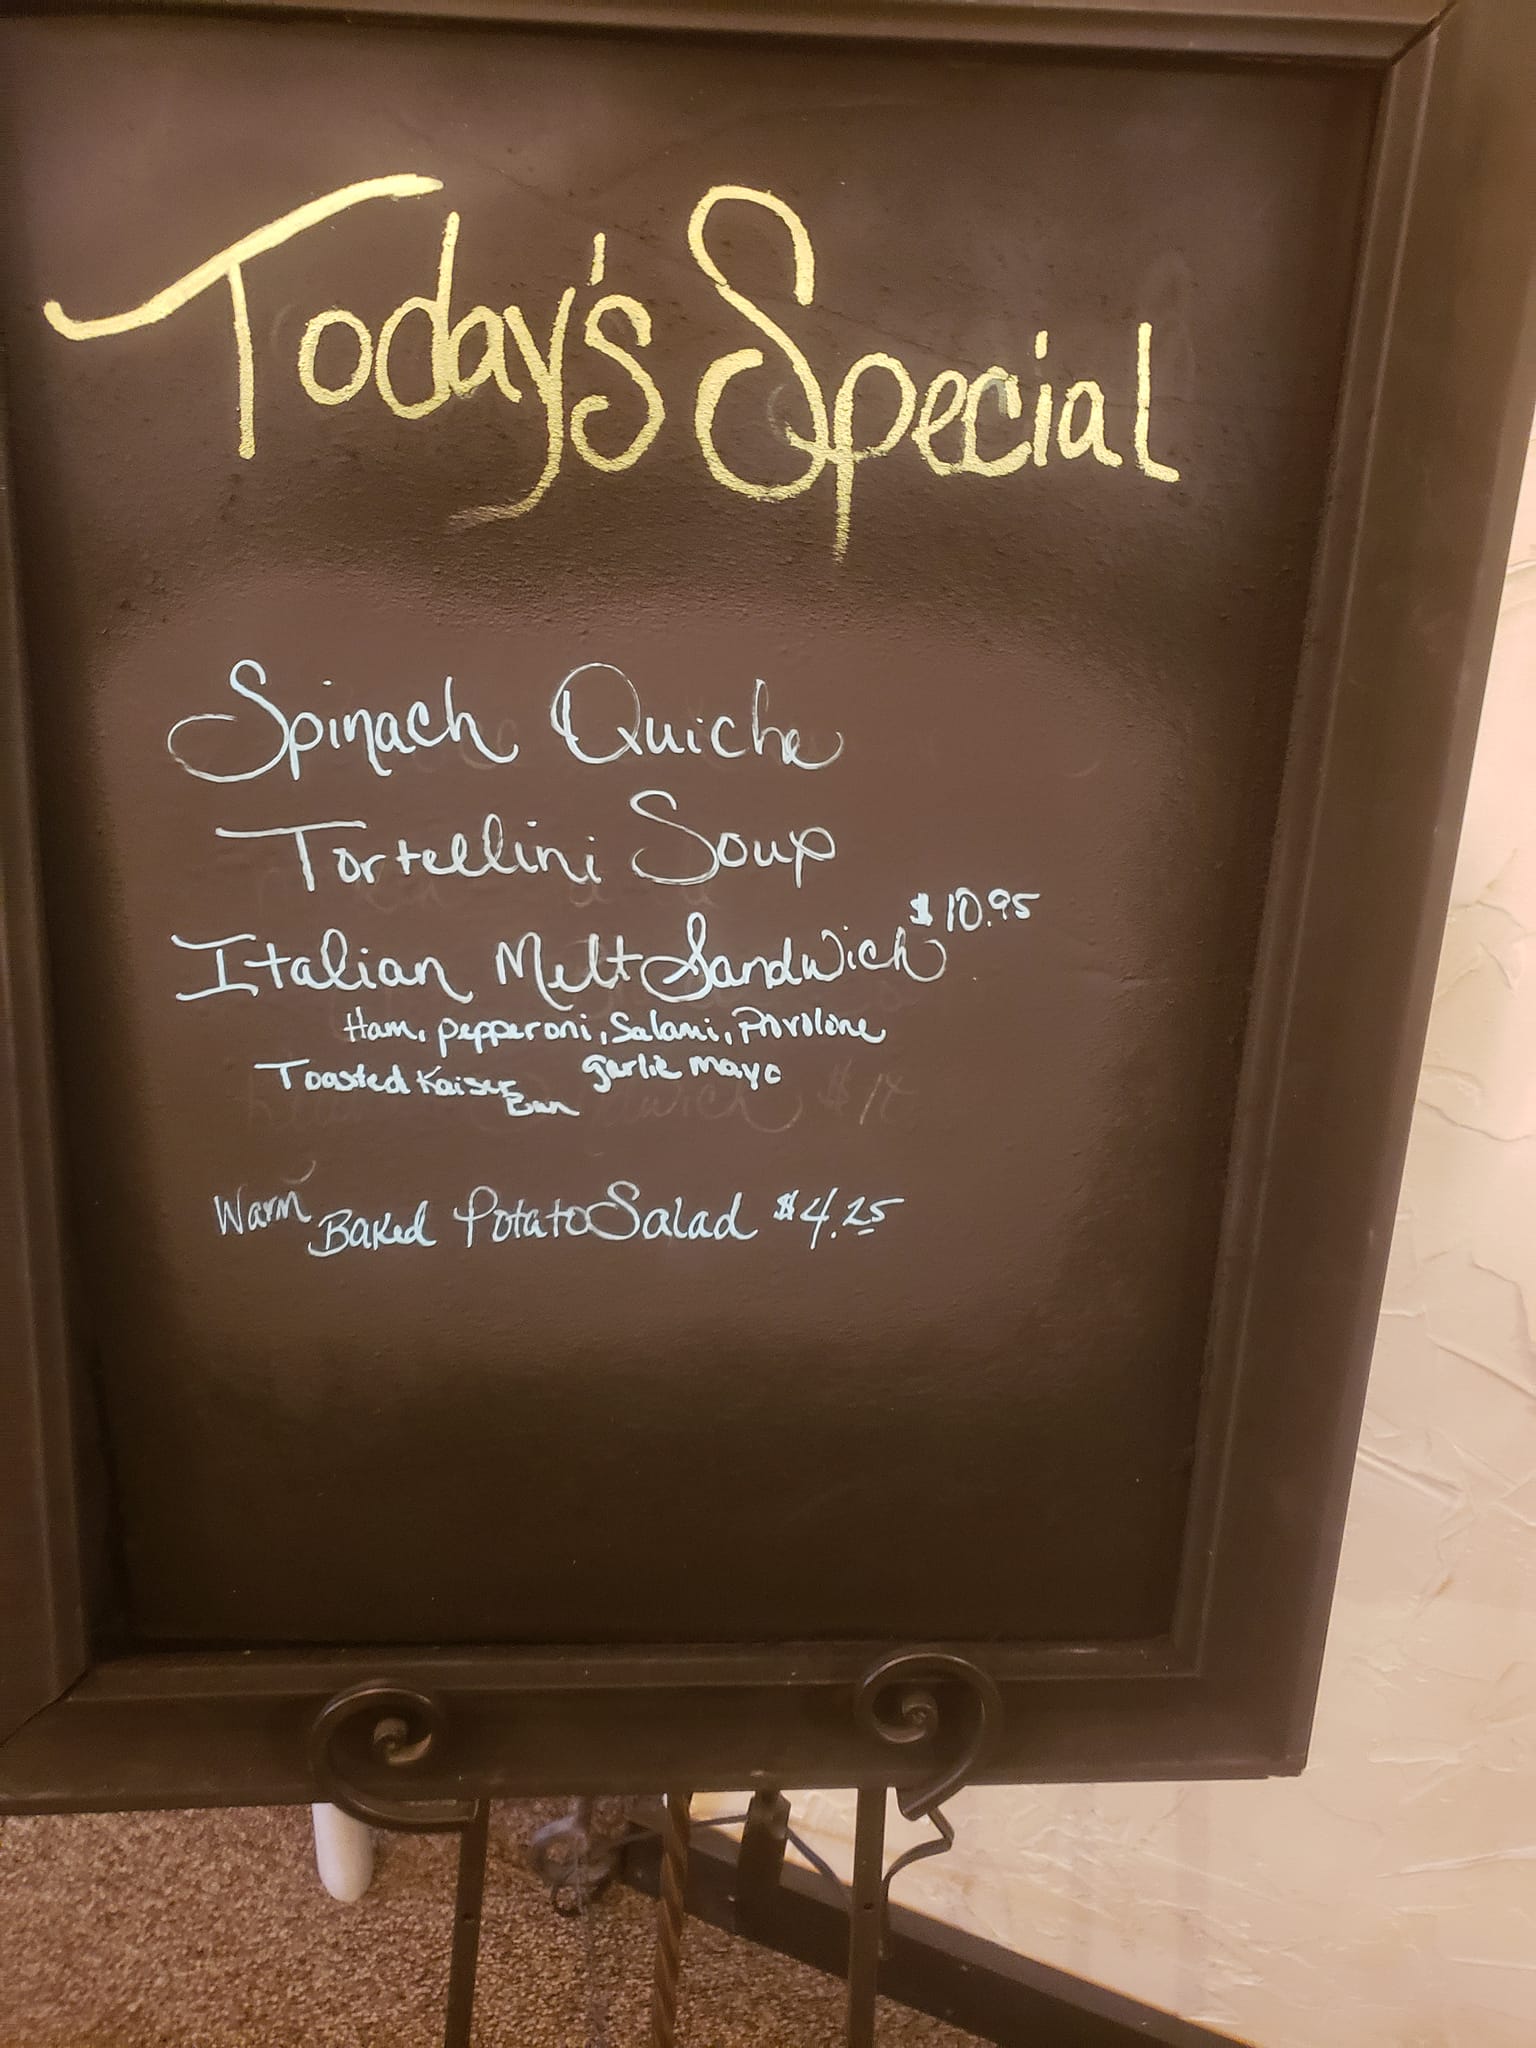 Today's Special
Spinach Quiche
Tortellini Soup
Italian Melt Sandwich $10.95
Ham, pepperoni, Salami, Provolone
Toasted Kaiser Bun garlic mayo
Warm Baked Potato Salad $4.25